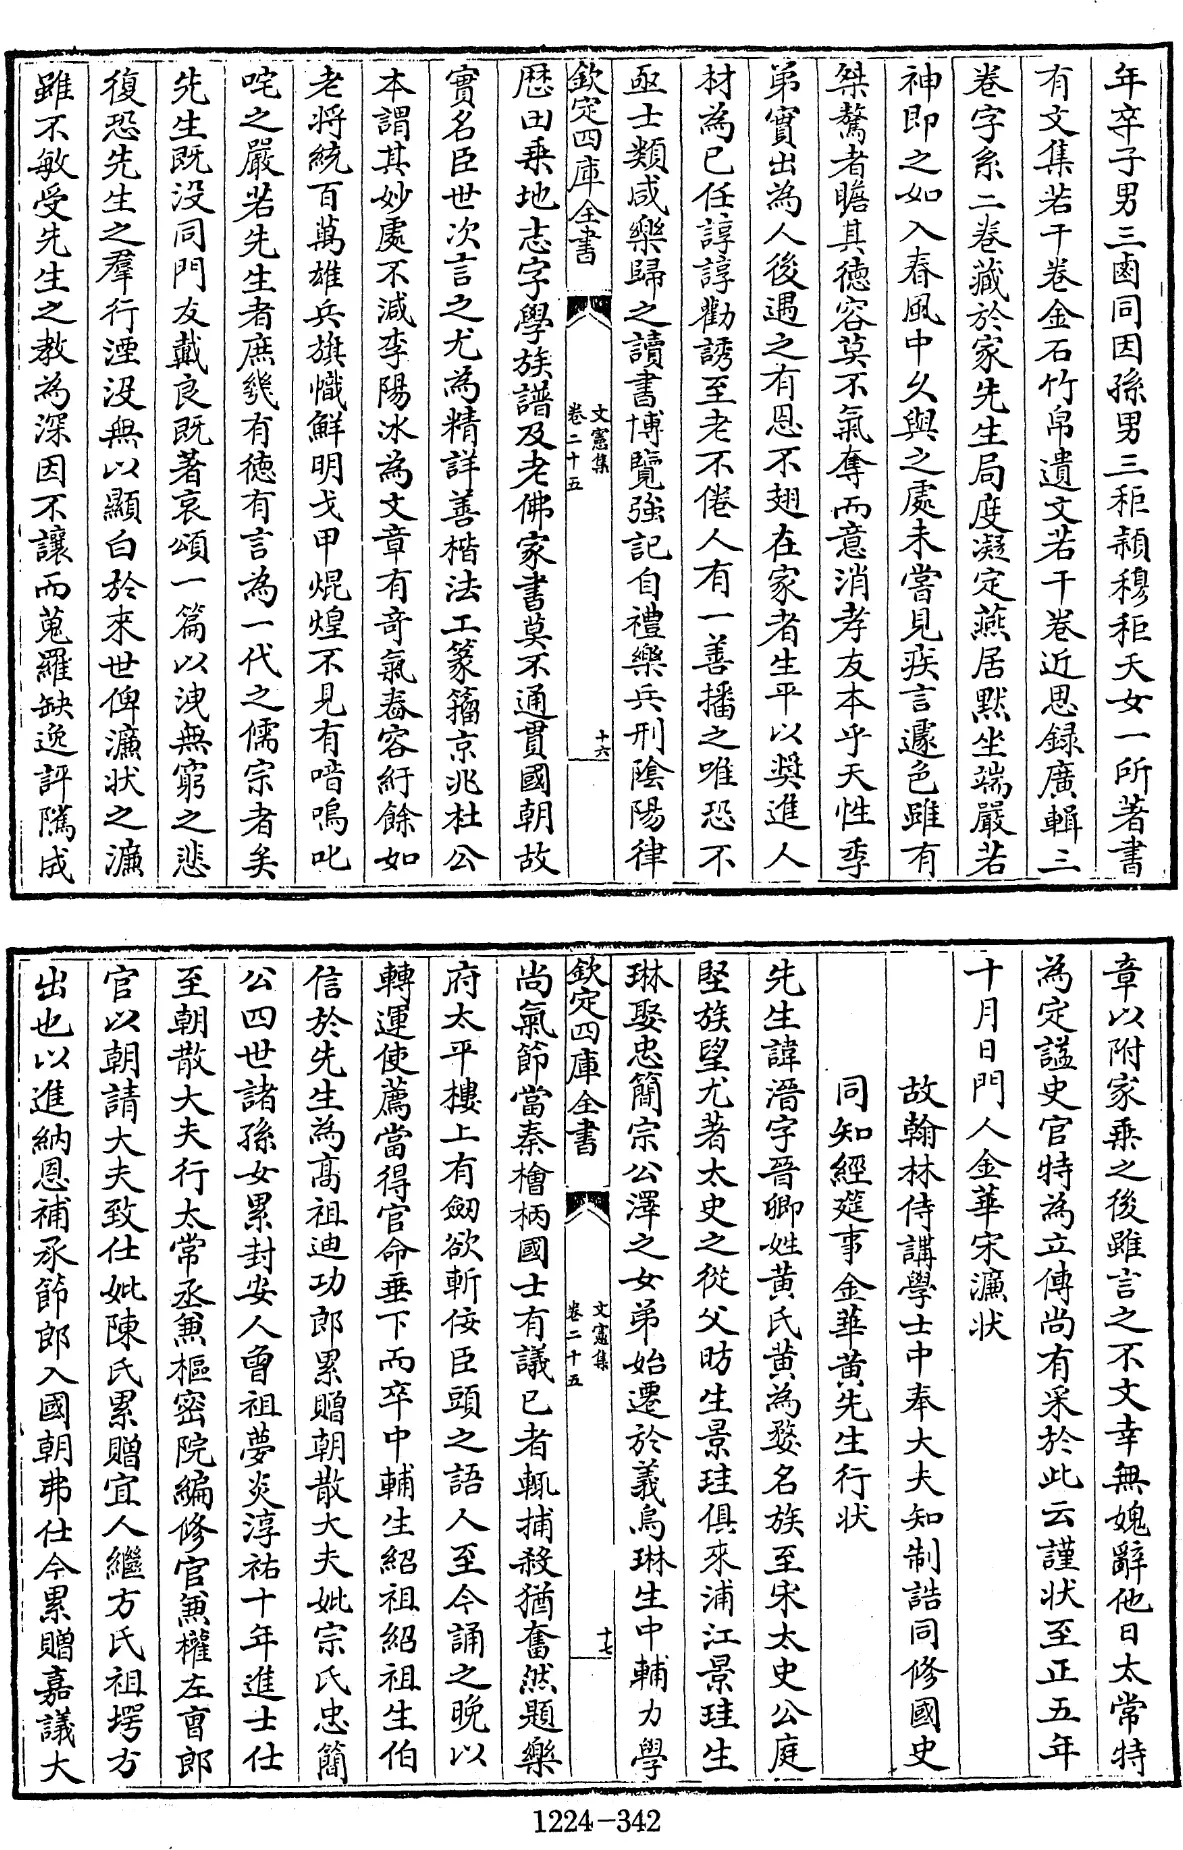 年卒子男三鹵同因孫男三秬䫉穆秬夭女一所著書
有文集若干卷金石竹帛遺文若干卷近思録廣輯三
卷字系二卷藏於家先生局度凝定燕居黙坐端嚴若
神即之如入春風中乆與之處未嘗見疾言遽色雖有
桀驁者瞻其徳容莫不氣奪而意消孝友本乎天性季
弟實出為人後遇之有恩不翅在家者生平以奬進人
材為已任諄諄勸誘至老不倦人有一善播之唯恐不
亟士類咸樂歸之讀書博覽強記自禮樂兵刑隂陽律
欽定四庫全書
文憲集
卷二十五
十六
厯田乗地志字學族譜及老佛家書莫不通貫國朝故
實名臣世次言之尤為精詳善楷法工篆籕京兆杜公
本謂其妙處不減李陽冰為文章有奇氣舂容紆餘如
老將統百萬雄兵旗幟鮮明戈甲焜煌不見有喑嗚叱
咤之嚴若先生者庶㡬有徳有言為一代之儒宗者矣
先生既没同門友戴良既著哀頌一篇以洩無窮之悲
復恐先生之羣行湮沒無以顯白於來世俾濂状之濂
雖不敏受先生之教為深因不讓而蒐羅缺逸評隲成
章以附家乗之後雖言之不文幸無媿辭他日太常特
為定諡史官特為立傳尚有采於此云謹状至正五年
十月日門人金華宋濂状
故翰林侍講學士中奉大夫知制誥同修國史
同知經筵事金華黄先生行状
先生諱溍字晉卿姓黄氏黄為婺名族至宋太史公庭
堅族望尤著太史之從父昉生景珪俱來浦江景珪生
琳娶忠簡宗公澤之女弟始遷於義烏琳生中輔力學
欽定四庫全書
文憲集
卷二十五
十七
尚氣節當秦檜柄國士有議已者輒捕殺猶奮然題樂
府太平樓上有劒欲斬佞臣頭之語人至今誦之晩以
轉運使薦當得官命垂下而卒中輔生紹祖紹祖生伯
信於先生為髙祖迪功郎累贈朝散大夫妣宗氏忠簡
公四世諸孫女累封安人曾祖夢炎淳祐十年進士仕
至朝散大夫行太常丞兼樞密院編修官兼權左曺郎
官以朝請大夫致仕妣陳氏累贈宜人繼方氏祖堮方
出也以進納恩補承節郎入國朝弗仕今累贈嘉議大
1224-342